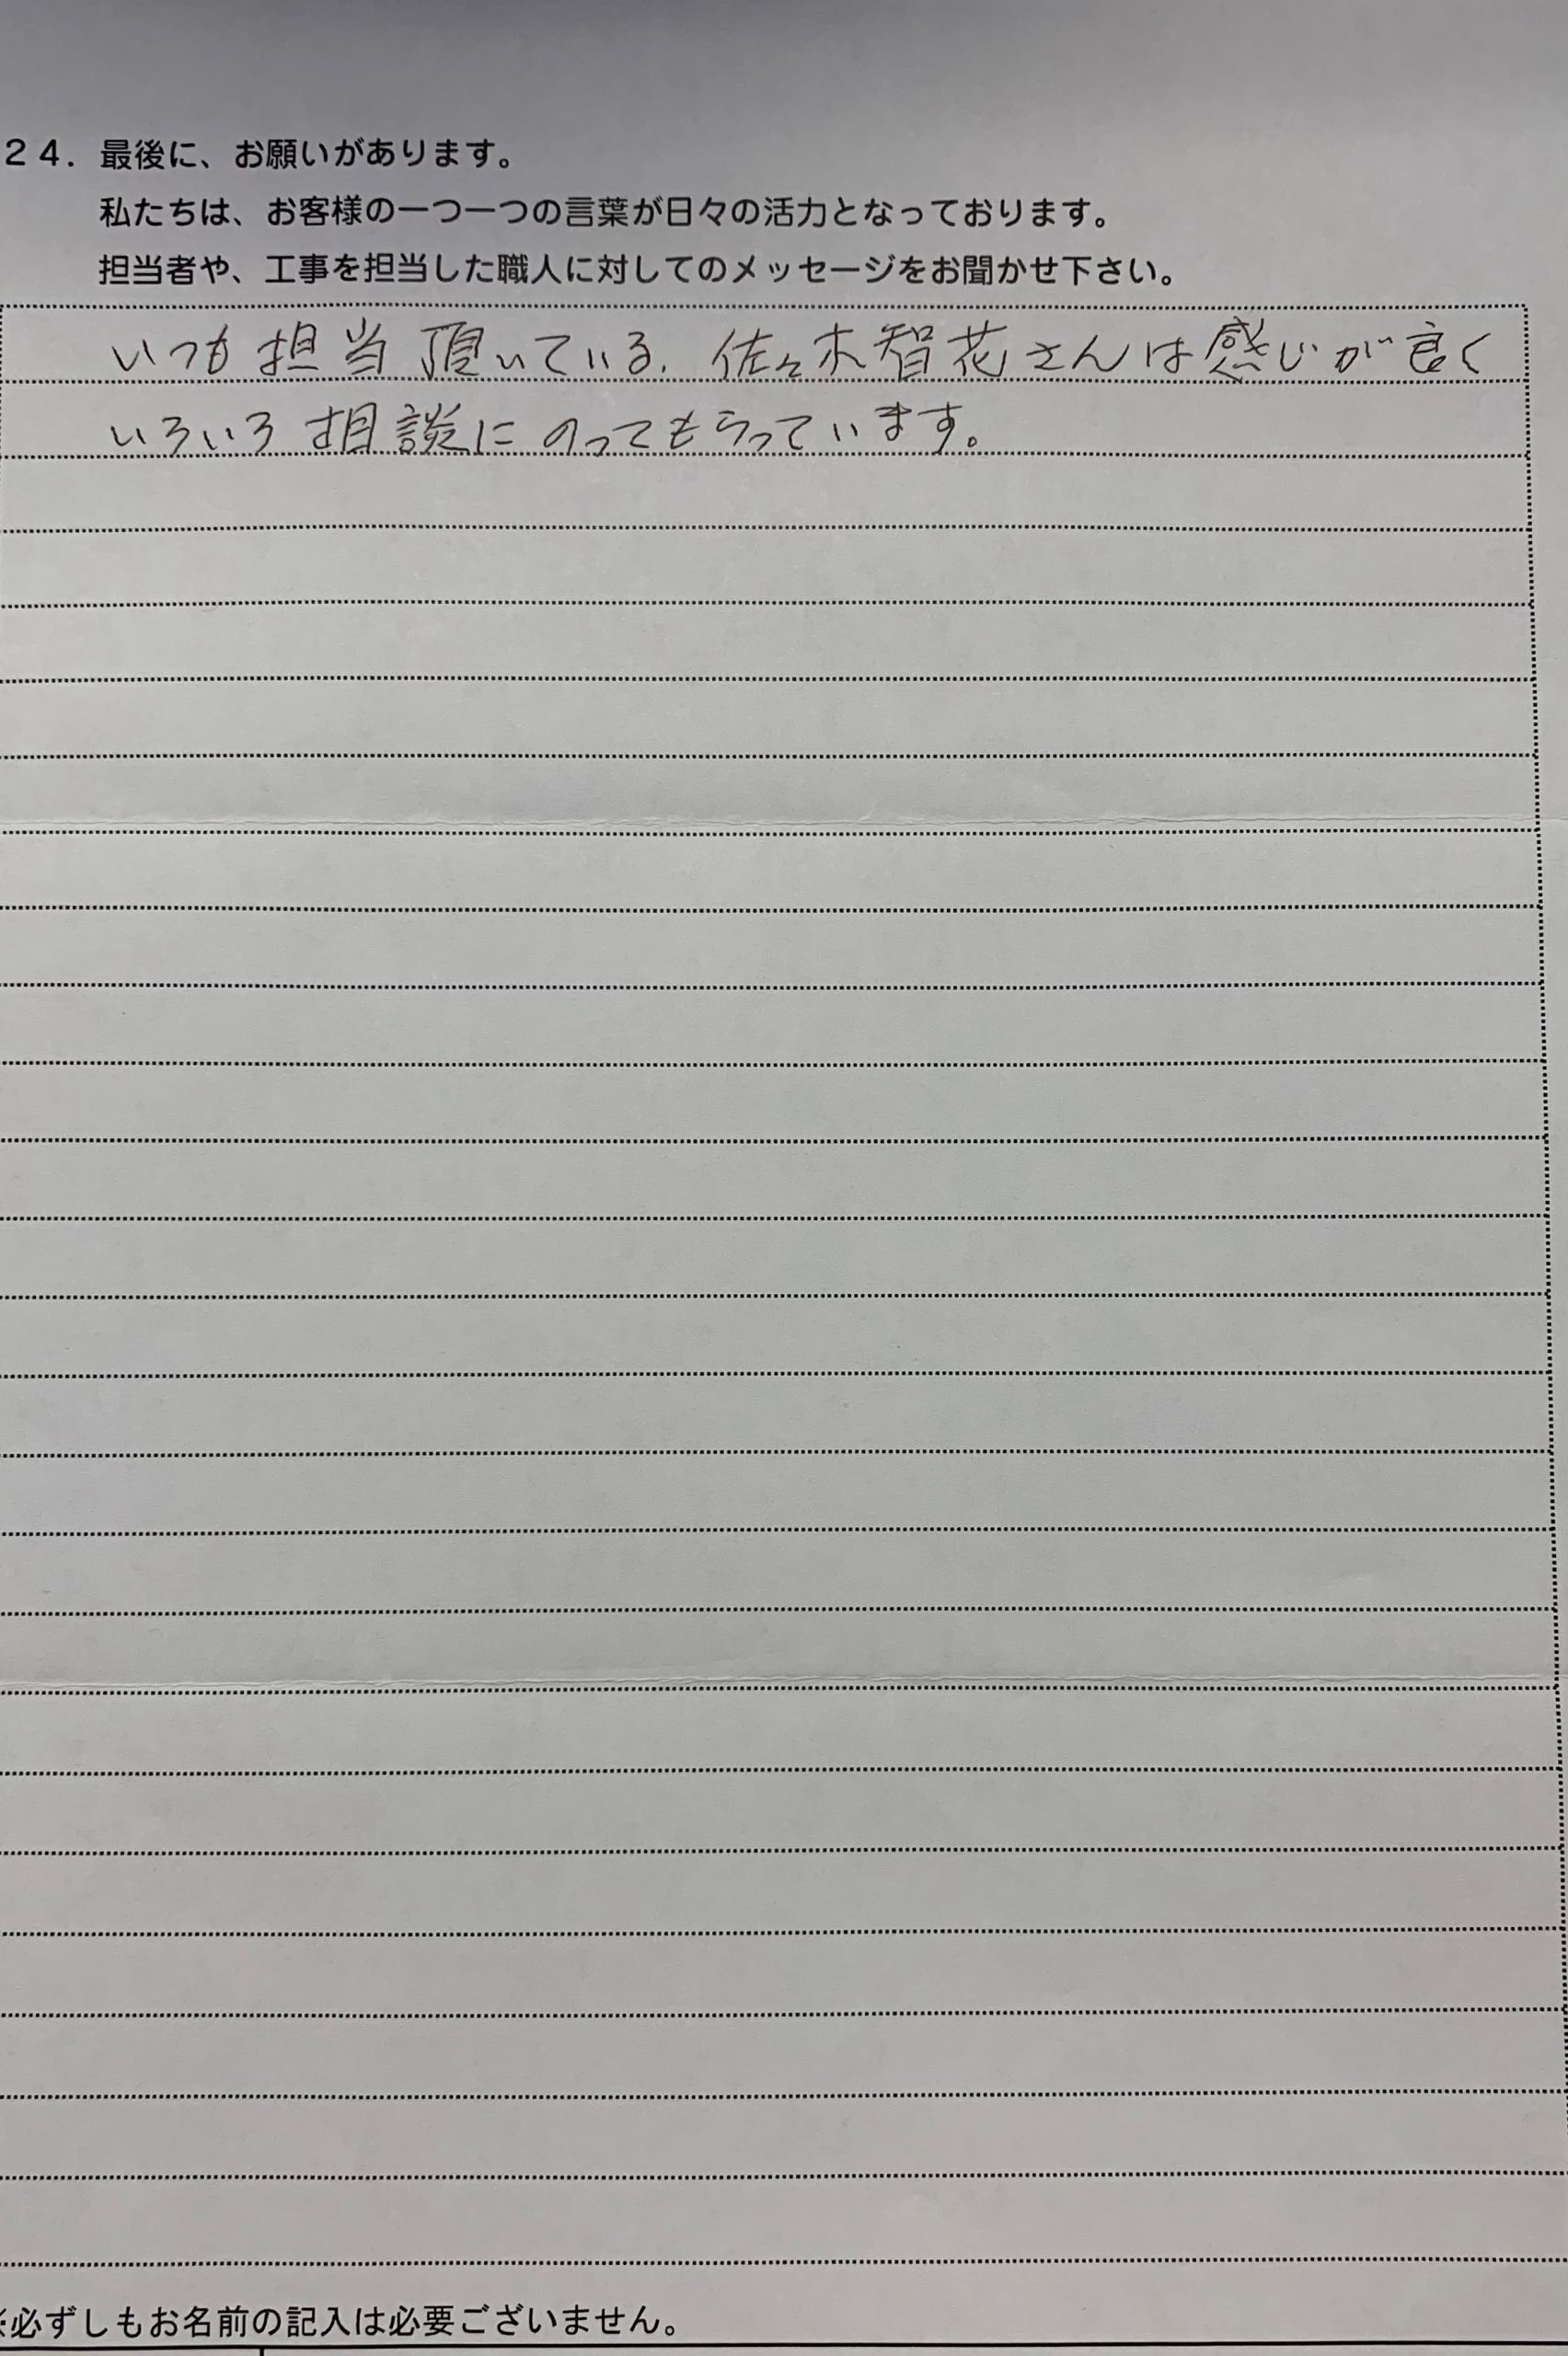 24. 最後に、お願いがあります。
私たちは、お客様の一つ一つの言葉が日々の活力となっております。
担当者や、工事を担当した職人に対してのメッセージをお聞かせ下さい。
いつも担当頂いている、佐々木智花さんは感じが良く
いろいろ相談にのってもらっています。
※必ずしもお名前の記入は必要ございません。